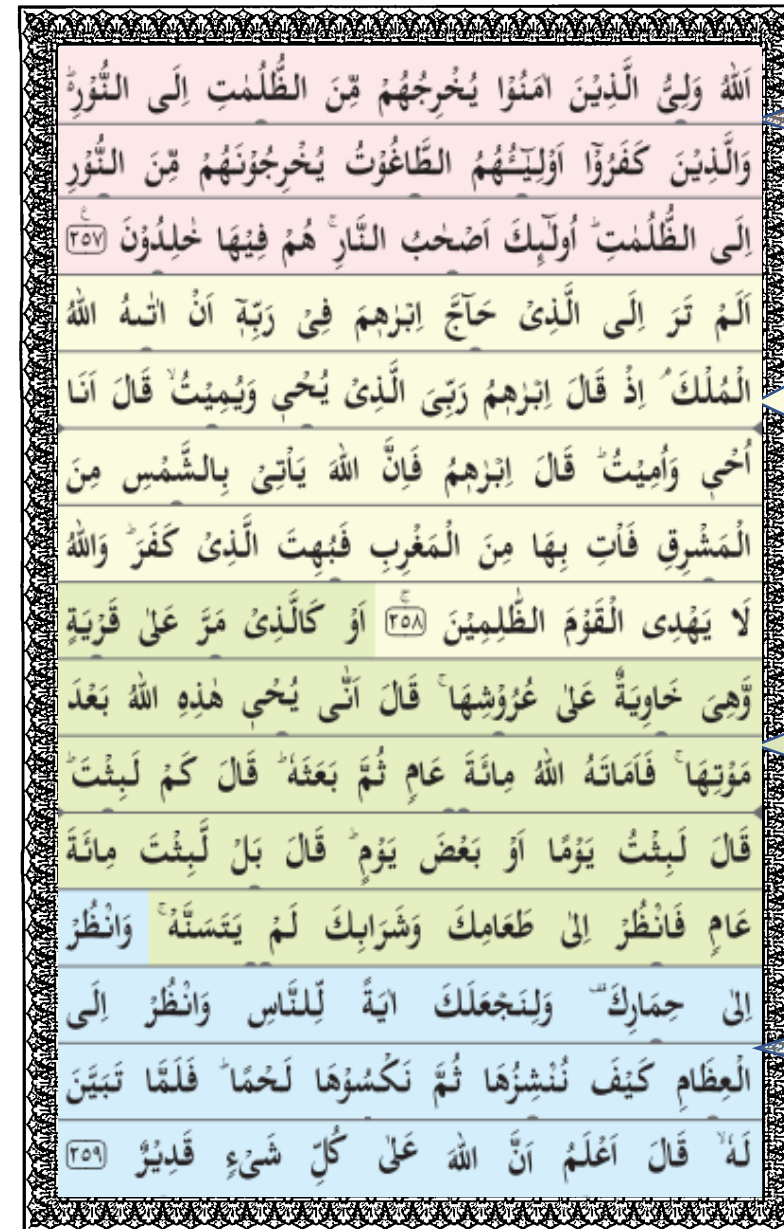 اَللّٰهُ وَلِیُّ الَّذِیْنَ اٰمَنُوْا یُخْرِجُهُمْ مِّنَ الظُّلُمٰتِ اِلَی النُّوْرِ۬ؕ
وَالَّذِیْنَ كَفَرُوْۤا اَوْلِیٰٓـُٔهُمُ الطَّاغُوْتُ یُخْرِجُوْنَهُمْ مِّنَ النُّوْرِ
اِلَی الظُّلُمٰتِؕ اُولٰٓىِٕكَ اَصْحٰبُ النَّارِۚ هُمْ فِیْهَا خٰلِدُوْنَ ۲۵۷ ع
اَلَمْ تَرَ اِلَی الَّذِیْ حَآجَّ اِبْرٰهٖمَ فِیْ رَبِّهٖۤ اَنْ اٰتٰىهُ اللّٰهُ
الْمُلْكَۘ اِذْ قَالَ اِبْرٰهٖمُ رَبِّیَ الَّذِیْ یُحْیٖ وَیُمِیْتُۙ قَالَ اَنَا
اُحْیٖ وَاُمِیْتُؕ قَالَ اِبْرٰهٖمُ فَاِنَّ اللّٰهَ یَاْتِیْ بِالشَّمْسِ مِنَ
الْمَشْرِقِ فَاْتِ بِهَا مِنَ الْمَغْرِبِ فَبُهِتَ الَّذِیْ كَفَرَؕ وَاللّٰهُ
لَا یَهْدِی الْقَوْمَ الظّٰلِمِیْنَۚ ۲۵۸ اَوْ كَالَّذِیْ مَرَّ عَلٰی قَرْیَةٍ
وَّهِیَ خَاوِیَةٌ عَلٰی عُرُوْشِهَاۚ قَالَ اَنّٰی یُحْیٖ هٰذِهِ اللّٰهُ بَعْدَ
مَوْتِهَاۚ فَاَمَاتَهُ اللّٰهُ مِائَةَ عَامٍ ثُمَّ بَعَثَهٗؕ قَالَ كَمْ لَبِثْتَؕ
قَالَ لَبِثْتُ یَوْمًا اَوْ بَعْضَ یَوْمٍؕ قَالَ بَلْ لَّبِثْتَ مِائَةَ
عَامٍ فَانْظُرْ اِلٰی طَعَامِكَ وَشَرَابِكَ لَمْ یَتَسَنَّهْۚ وَانْظُرْ
اِلٰی حِمَارِكَ۫ وَلِنَجْعَلَكَ اٰیَةً لِّلنَّاسِ وَانْظُرْ اِلَی
الْعِظَامِ كَیْفَ نُنْشِزُهَا ثُمَّ نَكْسُوْهَا لَحْمًاؕ فَلَمَّا تَبَیَّنَ
لَهٗۙ قَالَ اَعْلَمُ اَنَّ اللّٰهَ عَلٰی كُلِّ شَیْءٍ قَدِیْرٌ ۲۵۹